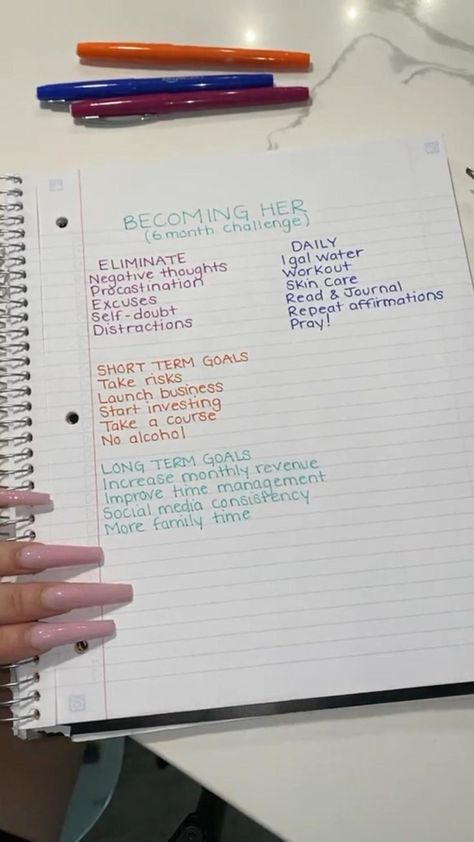 BECOMING HER
(6 month challenge)
ELIMINATE
Negative thoughts
Procastination
Excuses
Self-doubt
Distractions
DAILY
1 gal water
Workout
Skin care
Read & Journal
Repeat affirmations
Pray!
SHORT TERM GOALS
Take risks
Launch business
Start investing
Take a course
No alcohol
LONG TERM GOALS
Increase monthly revenue
Improve time management
Social media consistency
More family time